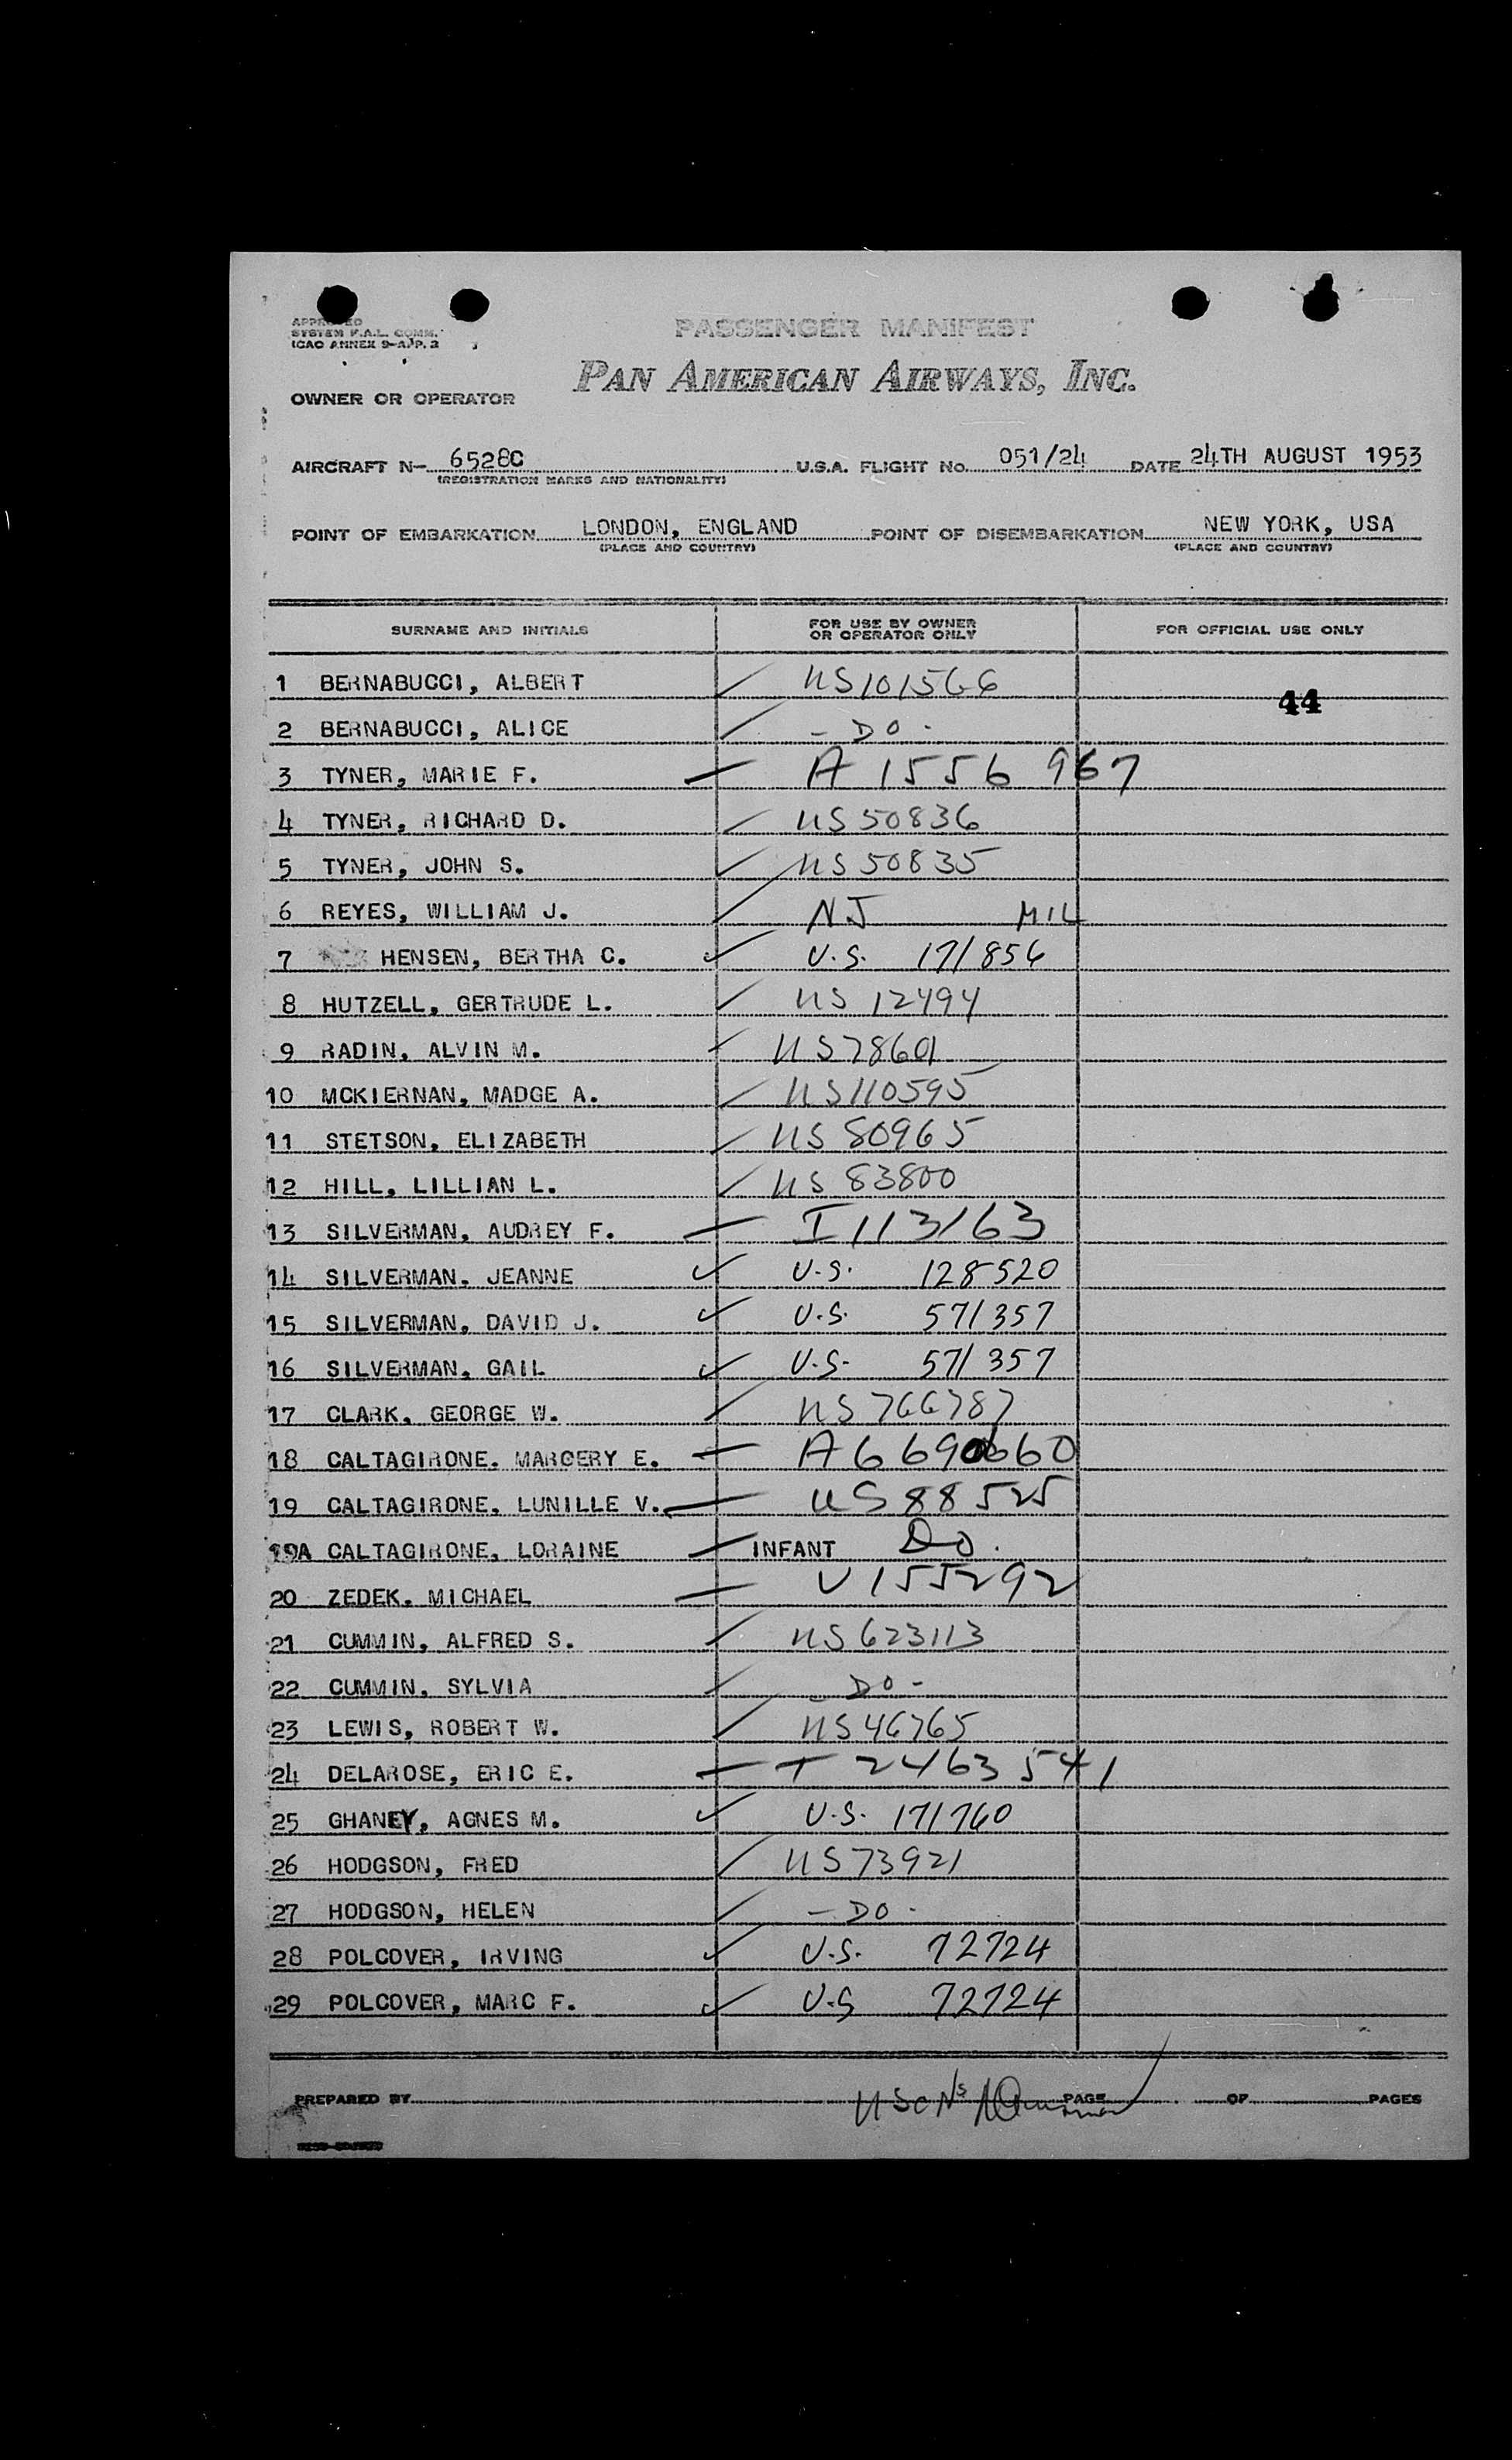 APPROVED
SYSTEM F.A.L. COMM.
ICAO ANNEX 9-APP. 2
PASSENGER MANIFEST
PAN AMERICAN AIRWAYS, INC.
OWNER OR OPERATOR
AIRCRAFT N- 6528C U.S.A. FLIGHT No. 051/24 DATE 24TH AUGUST 1953
(REGISTRATION MARKS AND NATIONALITY)
POINT OF EMBARKATION LONDON, ENGLAND POINT OF DISEMBARKATION NEW YORK, USA
(PLACE AND COUNTRY) (PLACE AND COUNTRY)
SURNAME AND INITIALS FOR USE BY OWNER OR OPERATOR ONLY FOR OFFICIAL USE ONLY
1 BERNABUCCI, ALBERT US101566
44
2 BERNABUCCI, ALICE - DO -
3 TYNER, MARIE F. A 1556 967
4 TYNER, RICHARD D. US50836
5 TYNER, JOHN S. US50835
6 REYES, WILLIAM J. NJ MIL
7 HENSEN, BERTHA C. U.S. 171856
8 HUTZELL, GERTRUDE L. US 12494
9 RADIN, ALVIN M. US78601
10 MCKIERNAN, MADGE A. US110595
11 STETSON, ELIZABETH US 80965
12 HILL, LILLIAN L. US 83800
13 SILVERMAN, AUDREY F. I113163
14 SILVERMAN, JEANNE U.S. 128520
15 SILVERMAN, DAVID J. U.S. 571357
16 SILVERMAN, GAIL U.S. 571357
17 CLARK, GEORGE W. US766787
18 CALTAGIRONE, MARGERY E. A6690660
19 CALTAGIRONE, LUNILLE V. US88525
19A CALTAGIRONE, LORAINE INFANT DO.
20 ZEDEK, MICHAEL V155292
21 CUMMIN, ALFRED S. US623113
22 CUMMIN, SYLVIA - DO -
23 LEWIS, ROBERT W. US46765
24 DELAROSE, ERIC E. T 2463541
25 GHANEY, AGNES M. U.S. 171760
26 HODGSON, FRED US73921
27 HODGSON, HELEN - DO -
28 POLCOVER, IRVING U.S. 72724
29 POLCOVER, MARC F. U.S 72724
PREPARED BY USCNS PAGE OF PAGES